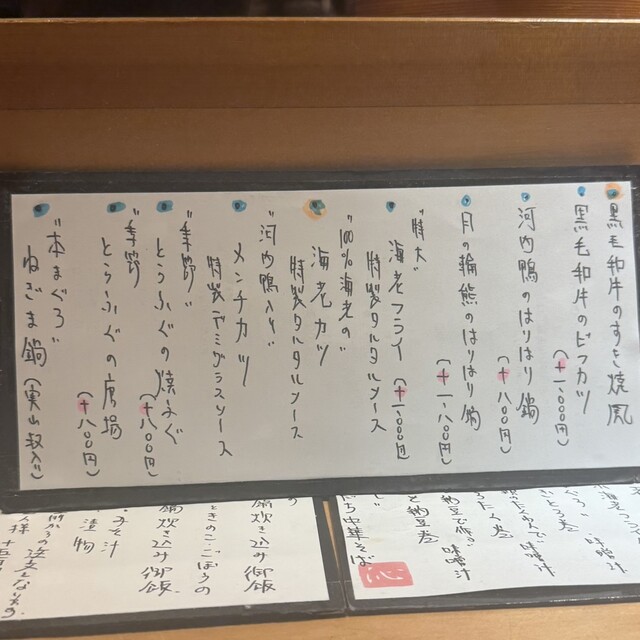 黒毛和牛のすき焼風
黒毛和牛のビフカツ
(+1,000円)
河内鴨のはりはり鍋
(+800円)
月の輪熊のはりはり鍋
(+1,800円)
"特大"
海老フライ (+1,000円)
特製タルタルソース
"100%海老の"
海老カツ
特製タルタルソース
"河内鴨入り"
メンチカツ
特製デミグラスソース
"季節"
とらふぐの焼ふぐ
(+800円)
"季節"
とらふぐの唐揚
(+800円)
"本まぐろ"
ねぎま鍋 (実山椒入り)
味噌汁
味噌汁
納豆巻
中華そば
沁
鍋炊き込み御飯
ときのこごぼうの
鍋炊き込み御飯
みそ汁
漬物